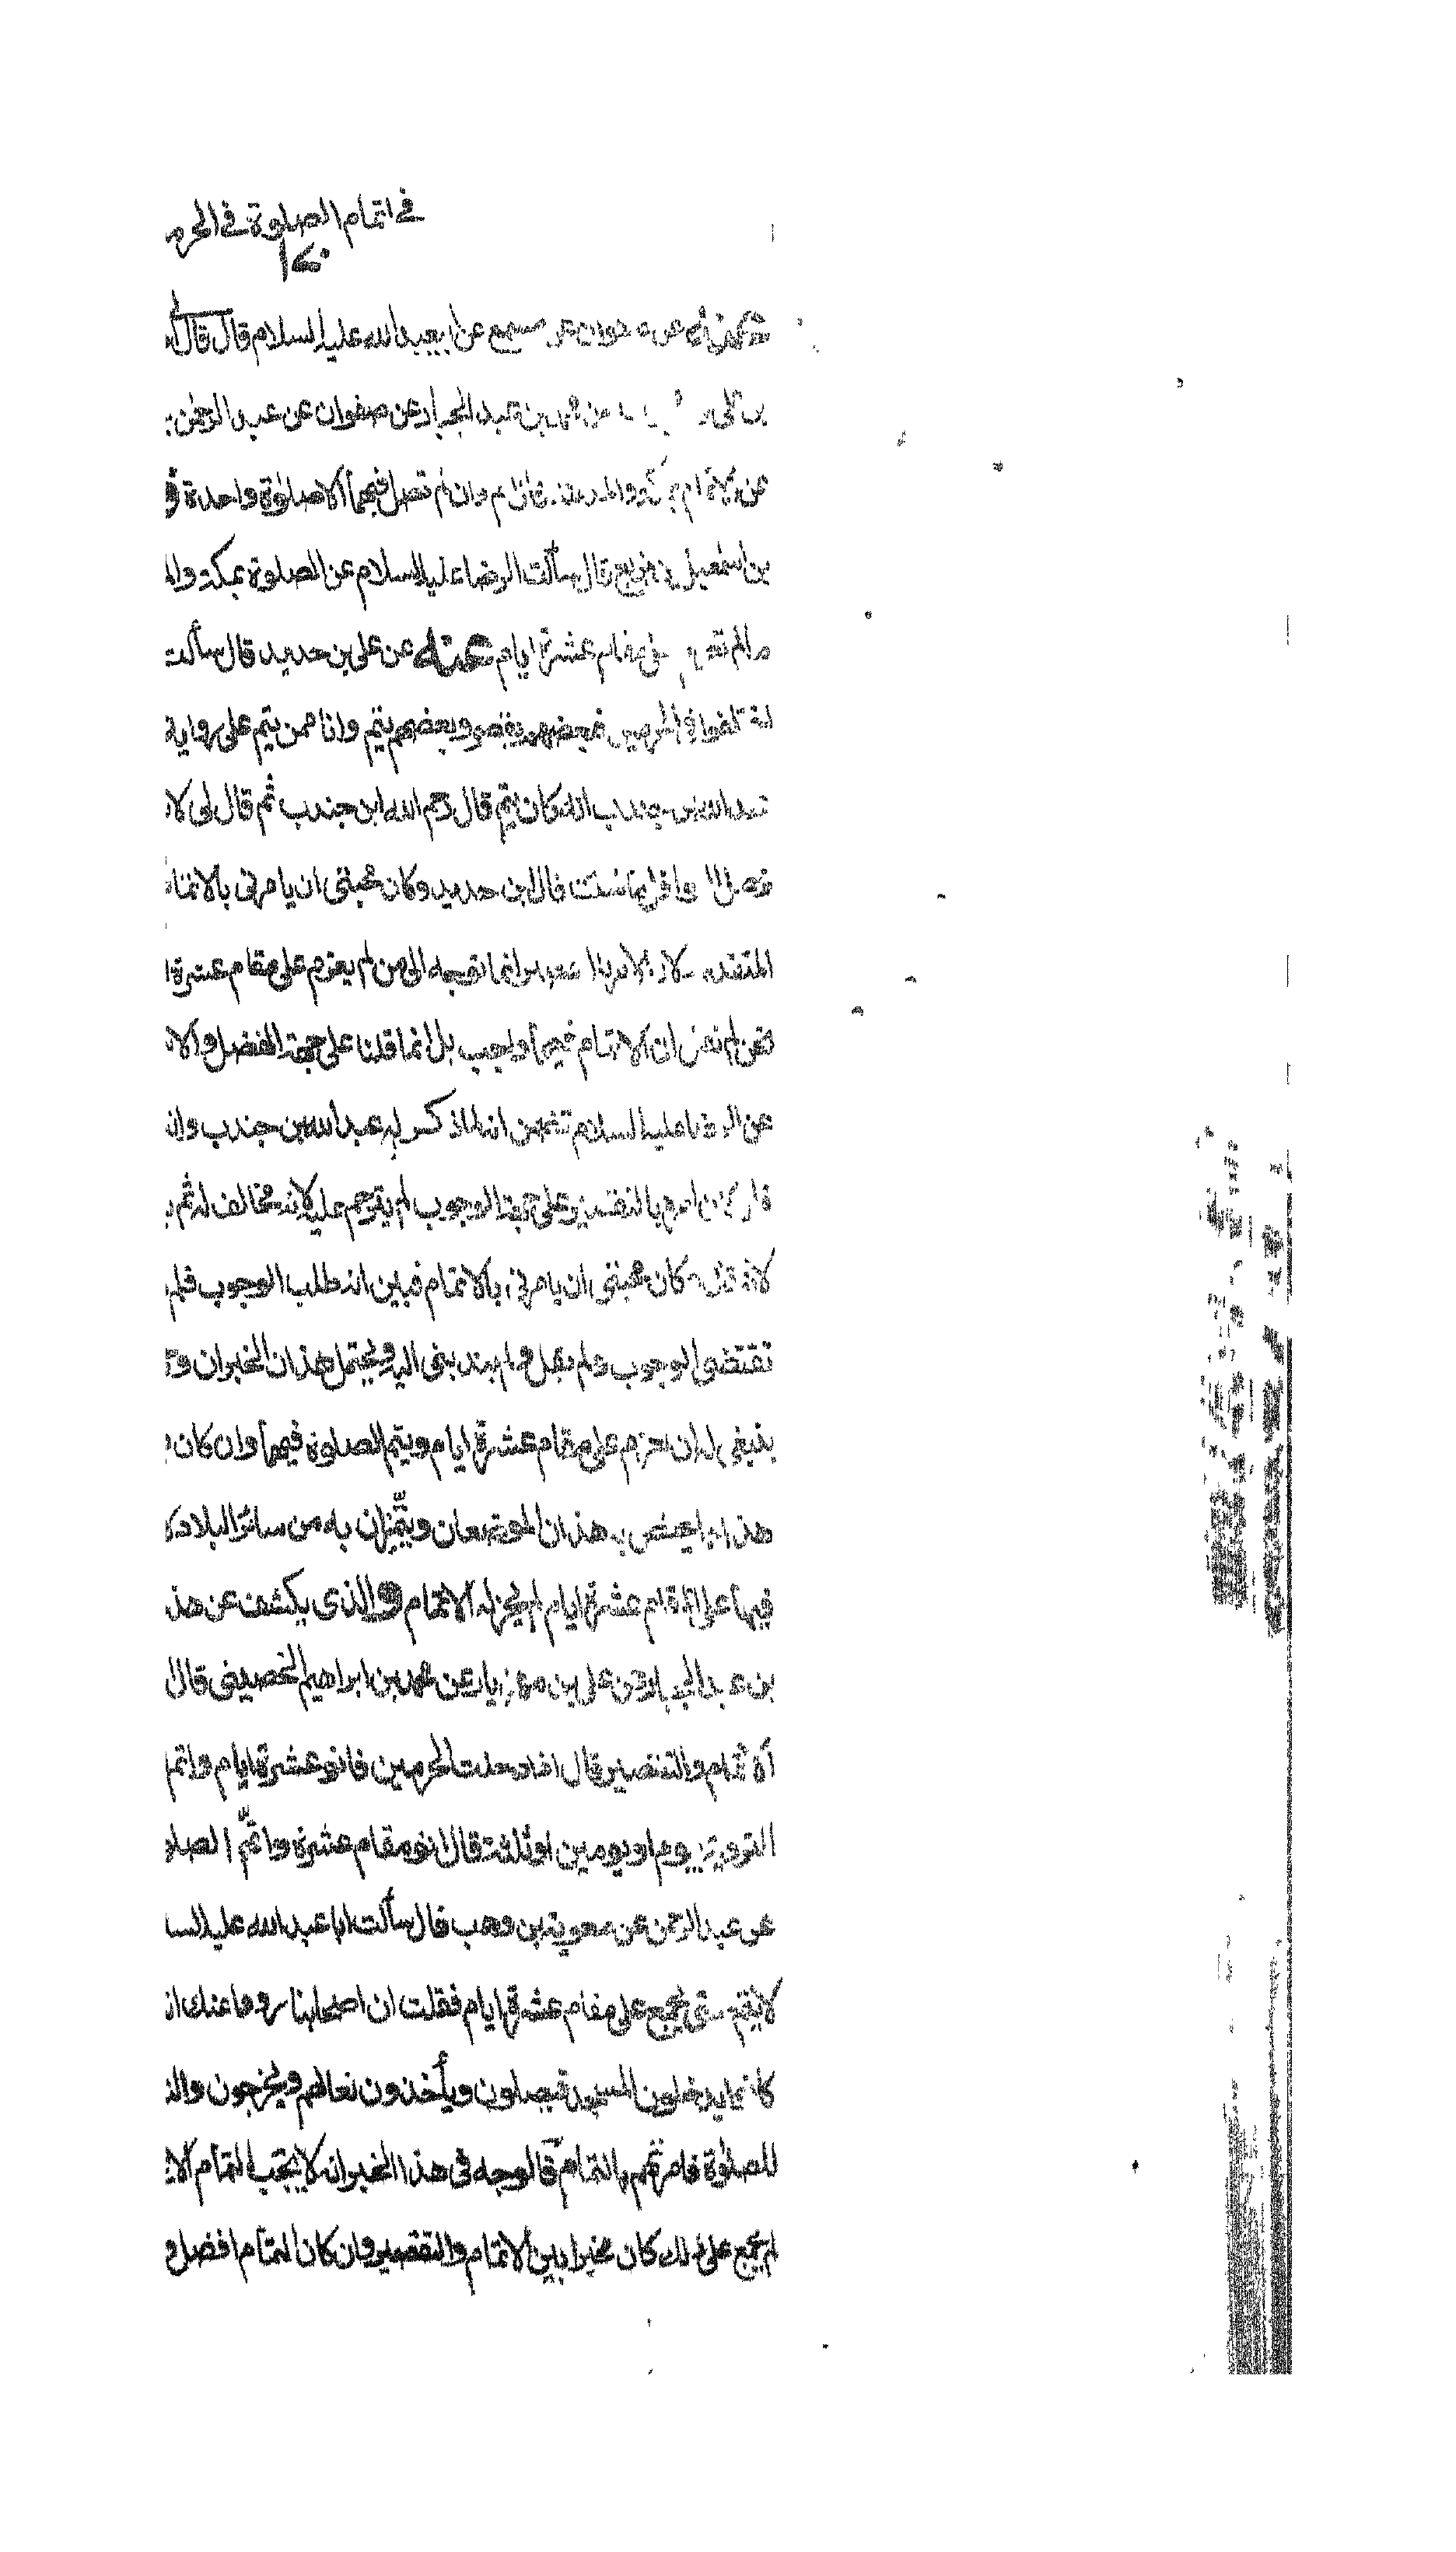 في اتمام الصلوة في الحرم
عنه عن صفوان عن مسمع عن ابي عبد الله عليه السلام قال قال
بن عبد الجبار عن صفوان عن عبد الرحمن
عن الاتمام بمكة والمدينة قال اتم وان لم تصل فيهما الا صلوة واحدة
بن اسمعيل بن بزيع قال سألت الرضا عليه السلام عن الصلوة بمكة
مالم تعزم على مقام عشرة ايام عنه عن على بن حديد قال سألت
اختلفوا في الحرمين فبعضهم يقصر وبعضهم يتم وانا ممن يتم على رواية
عبد الله بن جندب انه كان يتم قال رحم الله ابن جندب ثم قال لى لا
النوافل ما شئت قال ابن حديد وكان محبتى ان يامرنى بالاتمام
المتقدمة لان الامر انما توجه الى من لم يعزم على مقام عشرة
نحن لم نقل ان الاتمام فيهما واجب بل انما قلنا على جهة الفضل
عن الرضا عليه السلام تضمن انه لما ذكر له عبد الله بن جندب وانه
امره بالتقصير على جهة الوجوب لم يترحم عليه لانه مخالف له ثم
لانه قال كان محبتى ان يامرنى بالاتمام فبين انه طلب الوجوب فلم
تقتضى الوجوب ولم يقل ولم يندبنى اليه ويحتمل هذان الخبران
ينبغى له ان يعزم على مقام عشرة ايام ويتم الصلوة فيهما وان كان
هذا مما يختص به هذان الموضعان ويتميزان به من سائر البلاد
فيها على المقام عشرة ايام لم يجز له الاتمام والذى يكشف عن هذا
بن عبد الجبار عن على بن مهزيار عن محمد بن ابراهيم الحضينى قال
الاتمام والتقصير قال اذا دخلت الحرمين فانو عشرة ايام واتم
التروية بيوم او يومين او ثلثة قال انو مقام عشرة واتم الصلوة
عن عبد الرحمن عن معوية بن وهب قال سألت ابا عبد الله عليه السلام
لا يتم حتى يجمع على مقام عشرة ايام فقلت ان اصحابنا رووا عنك
كانوا يدخلون المسجد فيصلون ويأخذون نعالهم ويخرجون
للصلوة فامرتهم بالتمام فالوجه فى هذا الخبر انه لا يجب التمام الا
لم يجمع على ذلك كان مخيرا بين الاتمام والتقصير وان كان التمام افضل و